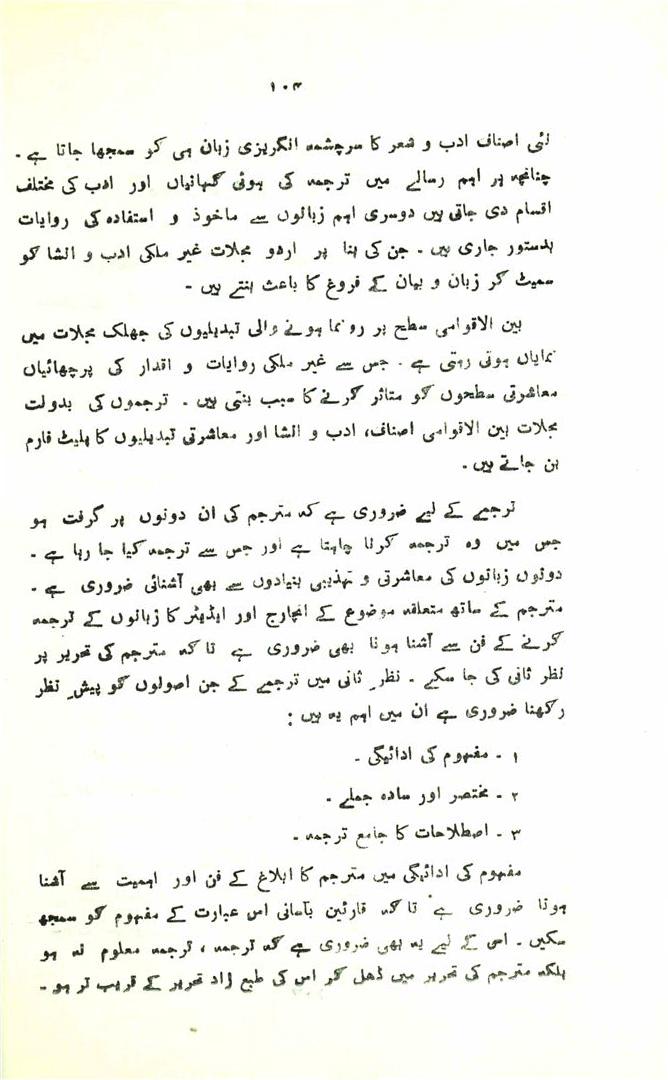 ۱۰۴
نئی اصناف ادب و شعر کا سرچشمہ انگریزی زبان ہی کو سمجھا جاتا ہے ۔
چنانچہ ہر اہم رسالے میں ترجمہ کی ہوئی کہانیاں اور ادب کی مختلف
اقسام دی جاتی ہیں دوسری اہم زبانوں سے ماخوذ و استفادہ کی روایات
بدستور جاری ہیں ۔ جن کی بنا پر اردو مجلات غیر ملکی ادب و انشا کو
سمیٹ کر زبان و بیان کے فروغ کا باعث بنتے ہیں ۔
بین الاقوامی سطح پر رونما ہونے والی تبدیلیوں کی جھلک مجلات میں
نمایاں ہوتی رہتی ہے ۔ جس سے غیر ملکی روایات و اقدار کی پرچھائیاں
معاشرتی سطحوں کو متاثر کرنے کا سبب بنتی ہیں ۔ ترجموں کی بدولت
مجلات بین الاقوامی اصناف، ادب و انشا اور معاشرتی تبدیلیوں کا پلیٹ فارم
بن جاتے ہیں ۔
ترجمے کے لیے ضروری ہے کہ مترجم کی ان دونوں پر گرفت ہو
جس میں وہ ترجمہ کرنا چاہتا ہے اور جس سے ترجمہ کیا جا رہا ہے ۔
دونوں زبانوں کی معاشرتی و تہذیبی بنیادوں سے بھی آشنائی ضروری ہے ۔
مترجم کے ساتھ متعلقہ موضوع کے انچارج اور ایڈیٹر کا زبانوں کے ترجمہ
کرنے کے فن سے آشنا ہونا بھی ضروری ہے تا کہ مترجم کی تحریر پر
نظر ثانی کی جا سکے ۔ نظرِ ثانی میں ترجمے کے جن اصولوں کو پیشِ نظر
رکھنا ضروری ہے ان میں اہم یہ ہیں :
۱ ۔ مفہوم کی ادائیگی ۔
۲ ۔ مختصر اور سادہ جملے ۔
۳ ۔ اصطلاحات کا جامع ترجمہ ۔
مفہوم کی ادائیگی میں مترجم کا ابلاغ کے فن اور اہمیت سے آشنا
ہونا ضروری ہے تا کہ قارئین بآسانی اس عبارت کے مفہوم کو سمجھ
سکیں ۔ اس کے لیے یہ بھی ضروری ہے کہ ترجمہ ، ترجمہ معلوم نہ ہو
بلکہ مترجم کی تحریر میں ڈھل کر اس کی طبع زاد تحریر کے قریب تر ہو ۔